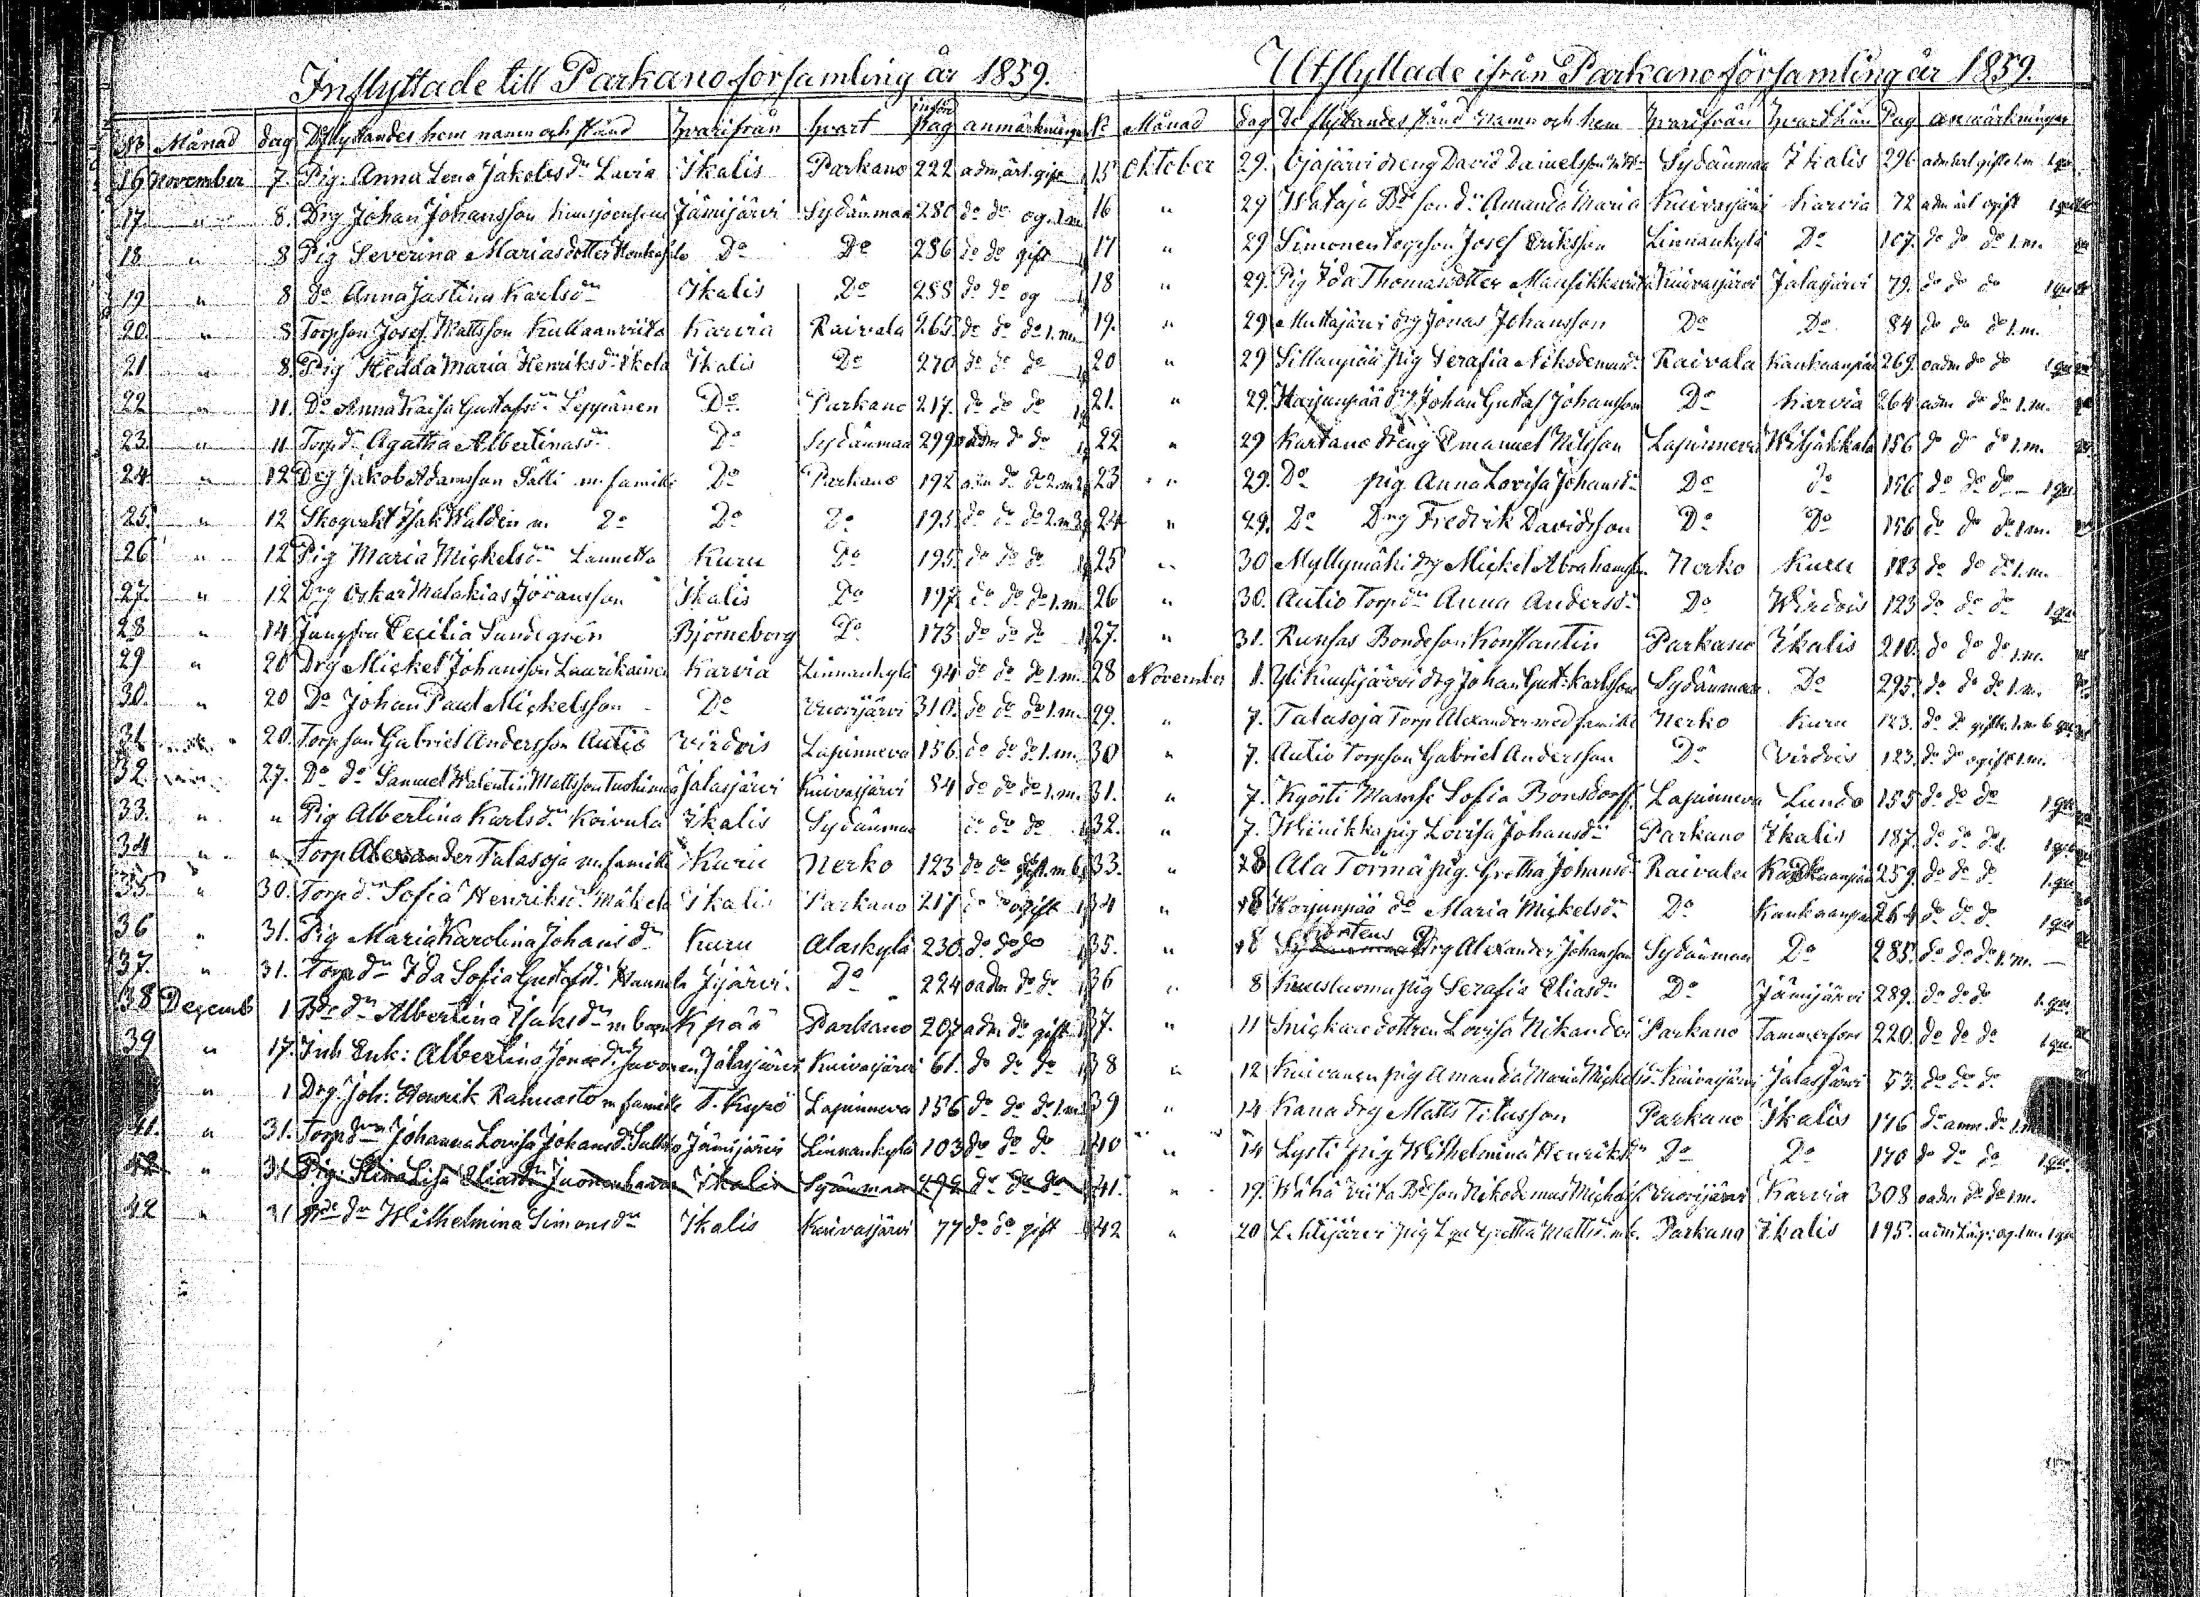 Inflyttade till Parkano församling år 1859.
No Månad dag Deflyttandes hem namn och stånd hvarifrån hvart införd pag anmärkningar
16 November 7. Pig. Anna Lena Jakobsdr Lavia Ikalis Parkano 222 adm. ärl. gift
17. " 8. Drg Johan Johansson Jämijärvi Sydänmaa 280 do do og. 1 m
18 " 8 Pig Severina Mariasdotter Do Do 286 do do gift
19 " 8 do Anna Justina Karlsdr Ikalis Do 288 do do og
20. " 8 Torpson Josef Mattsson Kullaanviita Karvia Raivala 265 do do do 1. m.
21 " 8. Pig Hedda Maria Henriksdr Skola Ikalis Do 270 do do do
22 " 11. Do Anna Kaisa Gustafsdr Leppänen Do Parkano 217. do do do
23. " 11 Torp dr Agatha Albertinasdr Do Sydänmaa 299 oadm do do
24. " 12 Drg Jakob Adamsson Sälli m. familie Do Parkano 192 adm do do 2. m
25. " 12 Skogvakt Isak Waldén m. Do Do Do 195 do do do 2. m 3
26 " 12 Pig Maria Mickelsdr Lannetta Kuru Do 195. do do do
27. " 12 Drg Oskar Malakias Jöransson Ikalis Do 197 do do do 1. m.
28 " 14 Jungfru Cecilia Sundegrén Björneborg Do 173 do do do
29 " 20 Drg Mickel Johansson Laurikainen Karvia Linnankylä 94 do do do 1. m.
30. " 20 Do Johan Paul Mickelsson Do Vuorijärvi 310. do do do 1. m.
31 " 20. Torpson Gabriel Andersson Autio Virdois Lapinneva 156. do do do 1. m.
32. " 27. Do do Samuel Walentin Mattsson Jalasjärvi Kuivasjärvi 84 do do do 1. m.
33. " " Pig Albertina Karlsdr Koivula Ikalis Sydänmaa do do do
34 " " Torp Alexander Talasoja m familie Kuru Nerko 123 do do gift 1. m 6
35 " 30. Torp dr Sofia Henriksdr Mäkelä Ikalis Parkano 217 do do ogift
36 " 31. Pig Maria Karolina Johansdr Kuru Alaskylä 230. do do do
37. " 31. Torp dr Ida Sofia Gustafsdr Do 224 oadm do do
38 Decemb 1 Bde dr Albertina Isaksdr m barn Parkano 207 adm do gift
39 " 17. Inh Enk: Albertina Jonaedr Jalasjärvi Kuivasjärvi 61. do do do
" 1 Drg. Joh. Henrik Rahnasto m familie T. Kyrö Lapinneva 156 do do do 1. m.
41. " 31. Torp dr Johanna Lovisa Johansdr Jämijärvi Linnankylä 103 do do do
42 " 31 Pig. Stina Lisa Eliasdr Ikalis Sydänmaa do do do
42 " 31 Bde dr Wilhelmina Simonsdr Ikalis Kuivasjärvi 77 do do gift
Utflyttade ifrån Parkano församling år 1859.
No Månad dag De flyttandes stånd namn och hem hvarifrån hvarthän Pag anmärkningar
15 Oktober 29. Ojajärvi dreng David Danielsson Sydänmaa Ikalis 296
16 " 29 Wataja Bdeson dr Amanda Maria Kuivasjärvi Karvia 72 adm ärl ogift
17 " 29 Simonen torpson Josef Eriksson Linnankylä Do 107. do do do 1. m.
18 " 29. Pig Ida Thomasdotter Mansikkaviita Kuivasjärvi Jalasjärvi 79. do do do
19. " 29 Mustajärvi drg Jonas Johansson Do Do 84 do do do 1. m.
20 " 29 Sillanpää pig Serafia Nikodemusdr Raivala Kankaanpää 269. oadm do do
21. " 29. Harjunpää drg Johan Gustaf Johansson Do Karvia 264 adm do do 1. m.
22 " 29 Kartano dreng Emanuel Nilsson Lapinneva Wiljakkala 156 do do do 1. m.
23 " 29. Do pig. Anna Lovisa Johansdr Do do 156 do do do
24 " 29. Do Drg Fredrik Davidsson Do Do 156 do do do 1. m.
25 " 30 Myllymäki drg Mickel Abrahamss. Nerko Kuru 123 do do do 1. m.
26 " 30. Autio Torp dr Anna Andersdr Do Wirdois 123 do do do
27. " 31. Runsas Bondeson Konstantin Parkano Ikalis 210. do do do 1. m.
28 November 1. Yli Kuusijärvi drg Johan Gust. Karlsson Sydänmaa Do 295. do do do 1. m.
29. " 7. Talasoja Torp Alexander med familie Nerko Kuru 123. do do gift 1. m 6
30 " 7. Autio Torpson Gabriel Andersson Do Virdois 123. do do ogift 1. m.
31. " 7. Kyösti Mamse Sofia Bonsdorff Lapinneva Lundo 155 do do do
32. " 7. Wiinikka pig Lovisa Johansdr Parkano Ikalis 187. do do do
33. " 28 Ala Törmä pig. Gretha Johansdr Raivala Kankaanpää 259. do do do
34 " 18 Harjunpää do Maria Mickelsdr Do Kankaanpää 264 do do do
35. " 18 Drg Alexander Johansson Sydänmaa Do 285. do do do 1. m.
36 " 8 Kuusluoma pig Serafia Eliasdr Do Jämijärvi 289. do do do
37. " 11 Snickare dottren Lovisa Nikander Parkano Tammerfors 220. do do do
38 " 12 Kuivanen pig Amanda Maria Mickelsdr Kuivasjärvi Jalasjärvi 53. do do do
39 " 14 Kana drg Matts Titusson Parkano Ikalis 176 do anm. do 1. m
40 " 14 Lysti pig Wilhelmina Henriksdr Do Do 170 do do do
41. " 19. Wähä viita Bdeson Nikodemus Vuorijärvi Karvia 308 oadm do do 1m.
42 " 20 Lehtijärvi pig Gretha Mattsdr m b. Parkano Ikalis 195.